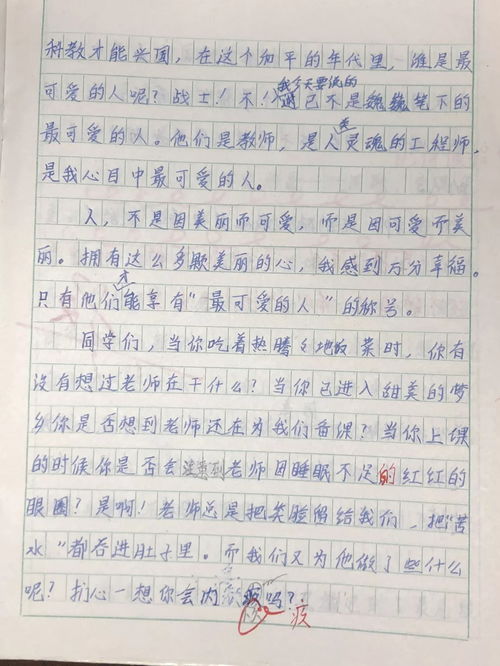 科教才能兴国，在这个和平的年代里，谁是最
我今天要说的
可爱的人呢？战士！不！已不是魏巍笔下的
最可爱的人。他们是教师，是人类灵魂的工程师，
是我心目中最可爱的人。
人，不是因美丽而可爱，而是因可爱而美
丽。拥有这么多颗美丽的心，我感到万分幸福。
只有他们才能享有“最可爱的人”的称号。
同学们，当你吃着热腾々地饭菜时，你有
没有想过老师在干什么？当你已进入甜美的梦
乡你是否想到老师还在为我们备课？当你上课
的时候你是否会注意到老师因睡眠不足的红红的
眼圈？是啊！老师总是把笑脸留给我们，把“苦
水”都吞进肚子里。而我们又为他做了些什么
呢？扪心一想你会内吗？
疚